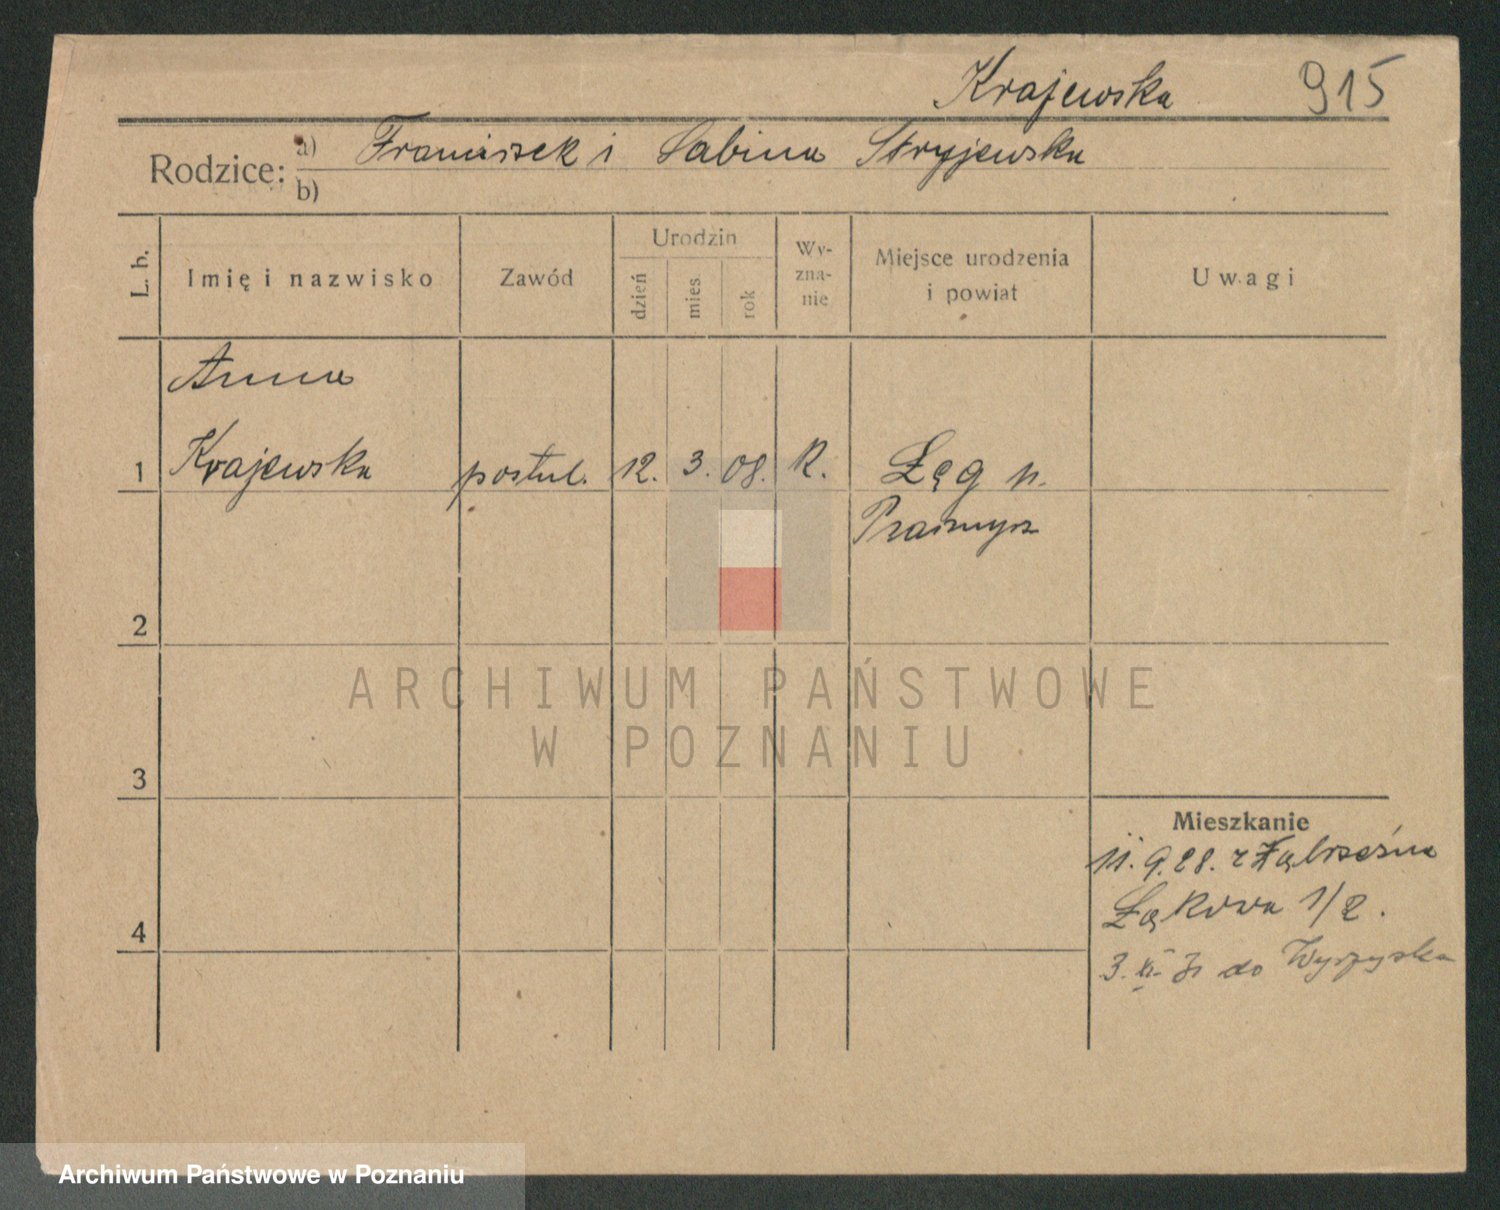 Krajewska 915
Rodzice: a) Franciszek i Sabina Stryjewska
b)
L. b. Imię i nazwisko Zawód Urodzin dzień mies. rok Wy-zna-nie Miejsce urodzenia i powiat Uwagi
Anna
1 Krajewska postul. 12. 3. 08. R. Łęg p.
2
3
4
Mieszkanie
11. 9. 28. z
Łąkowa 1/2.
3. XI 31 do Wyrzyska
ARCHIWUM PAŃSTWOWE
W POZNANIU
Archiwum Państwowe w Poznaniu